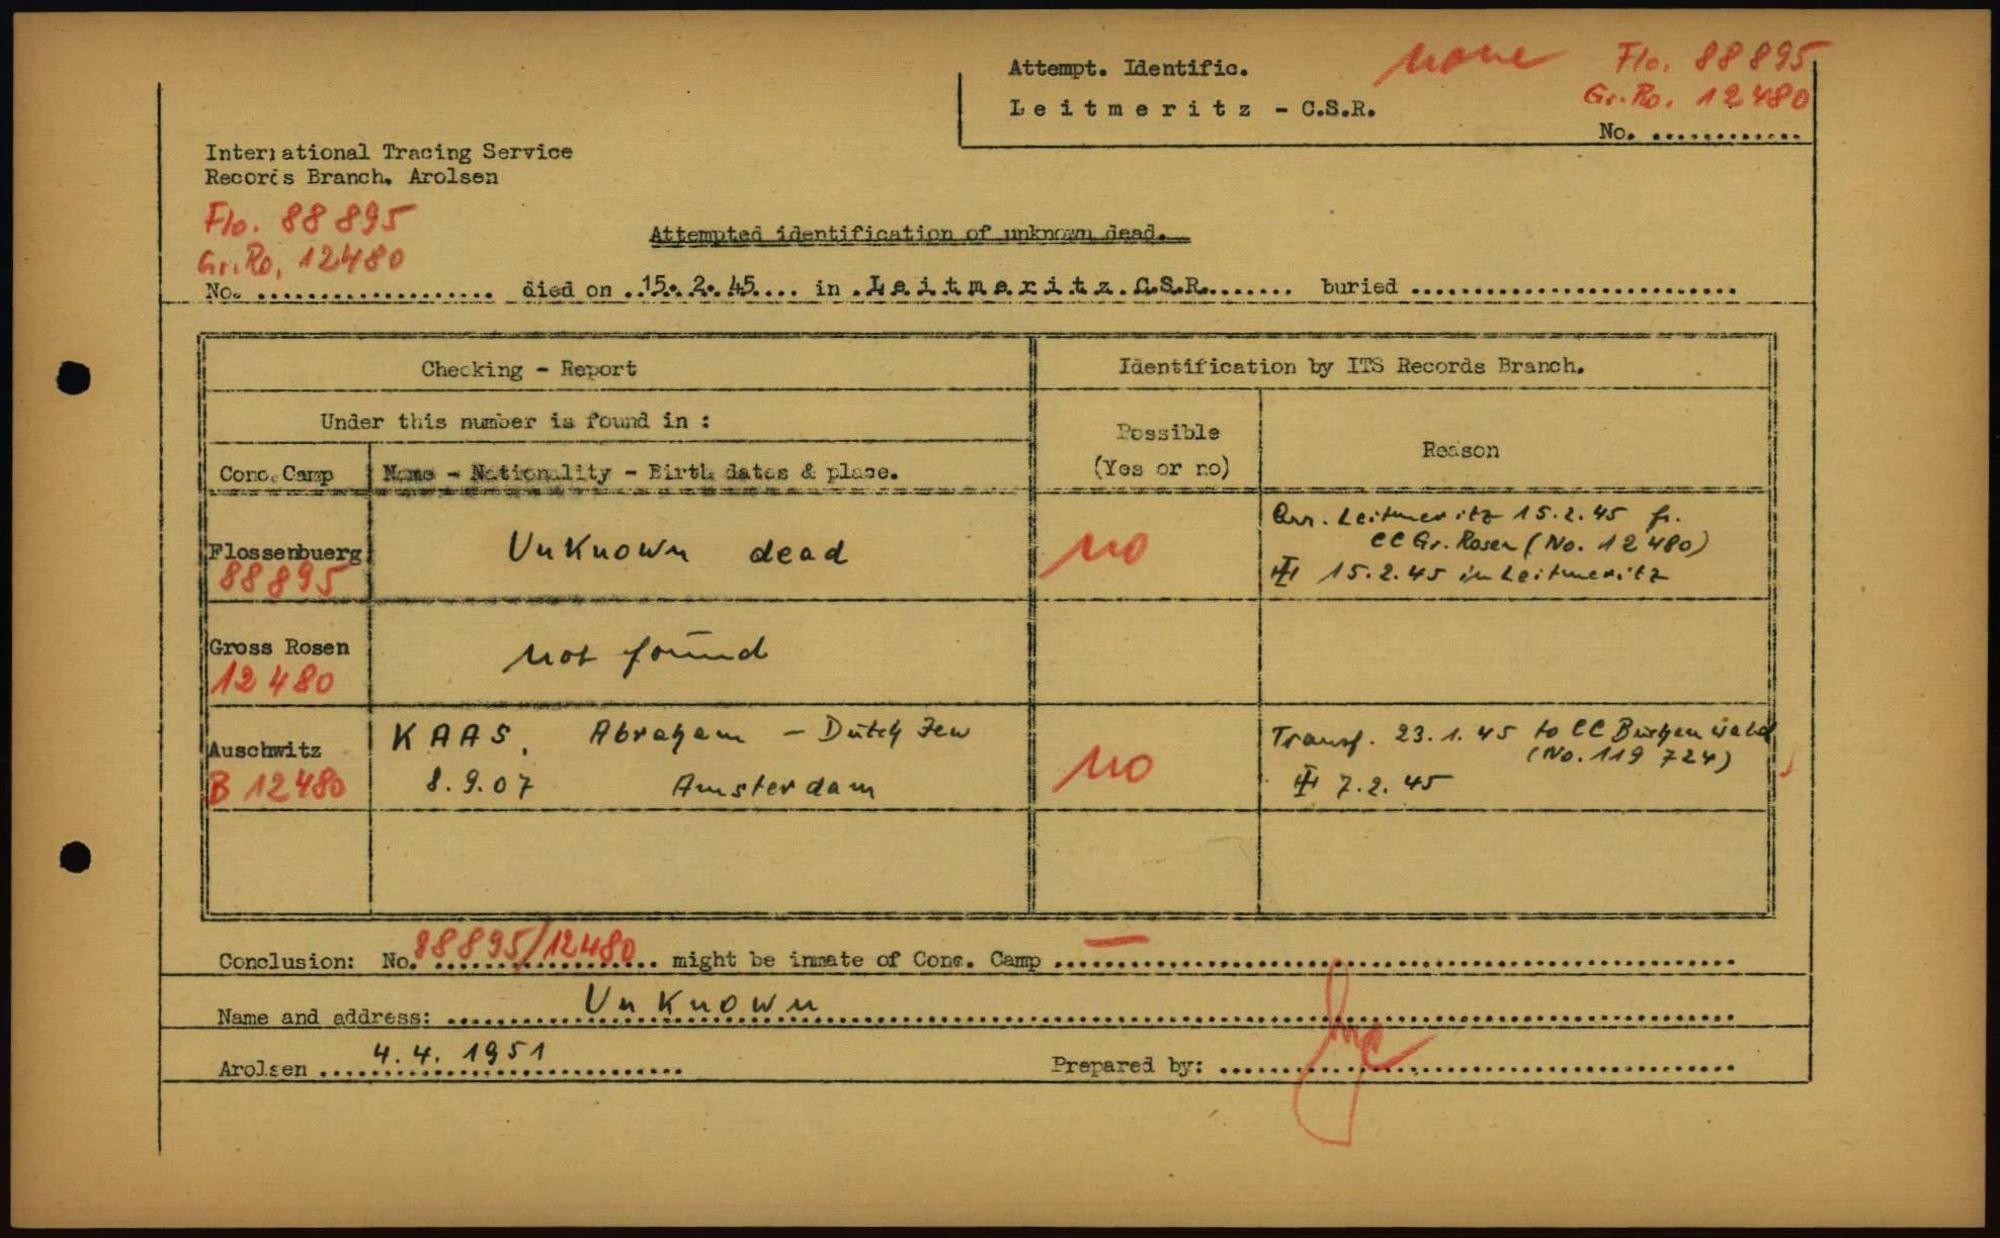 Attempt. Identific.
none
Flo. 88895
Leitmeritz - C.S.R.
Gr.Ro. 12480
No. .............
International Tracing Service
Records Branch, Arolsen
Flo. 88895
Gr.Ro. 12480
Attempted identification of unknown dead.
No. .................... died on ..15. 2. 45.... in .Leitmeritz.C.S.R........ buried ...........................
Checking - Report
Identification by ITS Records Branch.
Under this number is found in :
Possible
(Yes or no)
Reason
Conc.Camp
Name - Nationality - Birth dates & place.
Flossenbuerg
88895
Unknown dead
no
Arr. Leitmeritz 15.2.45 fr.
CC Gr. Rosen (No. 12480)
15.2.45 in Leitmeritz
Gross Rosen
12480
not found
Auschwitz
B 12480
KAAS, Abraham - Dutch Jew
8.9.07 Amsterdam
no
Transf. 23.1.45 to CC Buchenwald
(No. 119 724)
7.2.45
Conclusion: No. 88895/12480 might be inmate of Conc. Camp —
Name and address: Unknown
Arolsen 4.4.1951
Prepared by: ..........